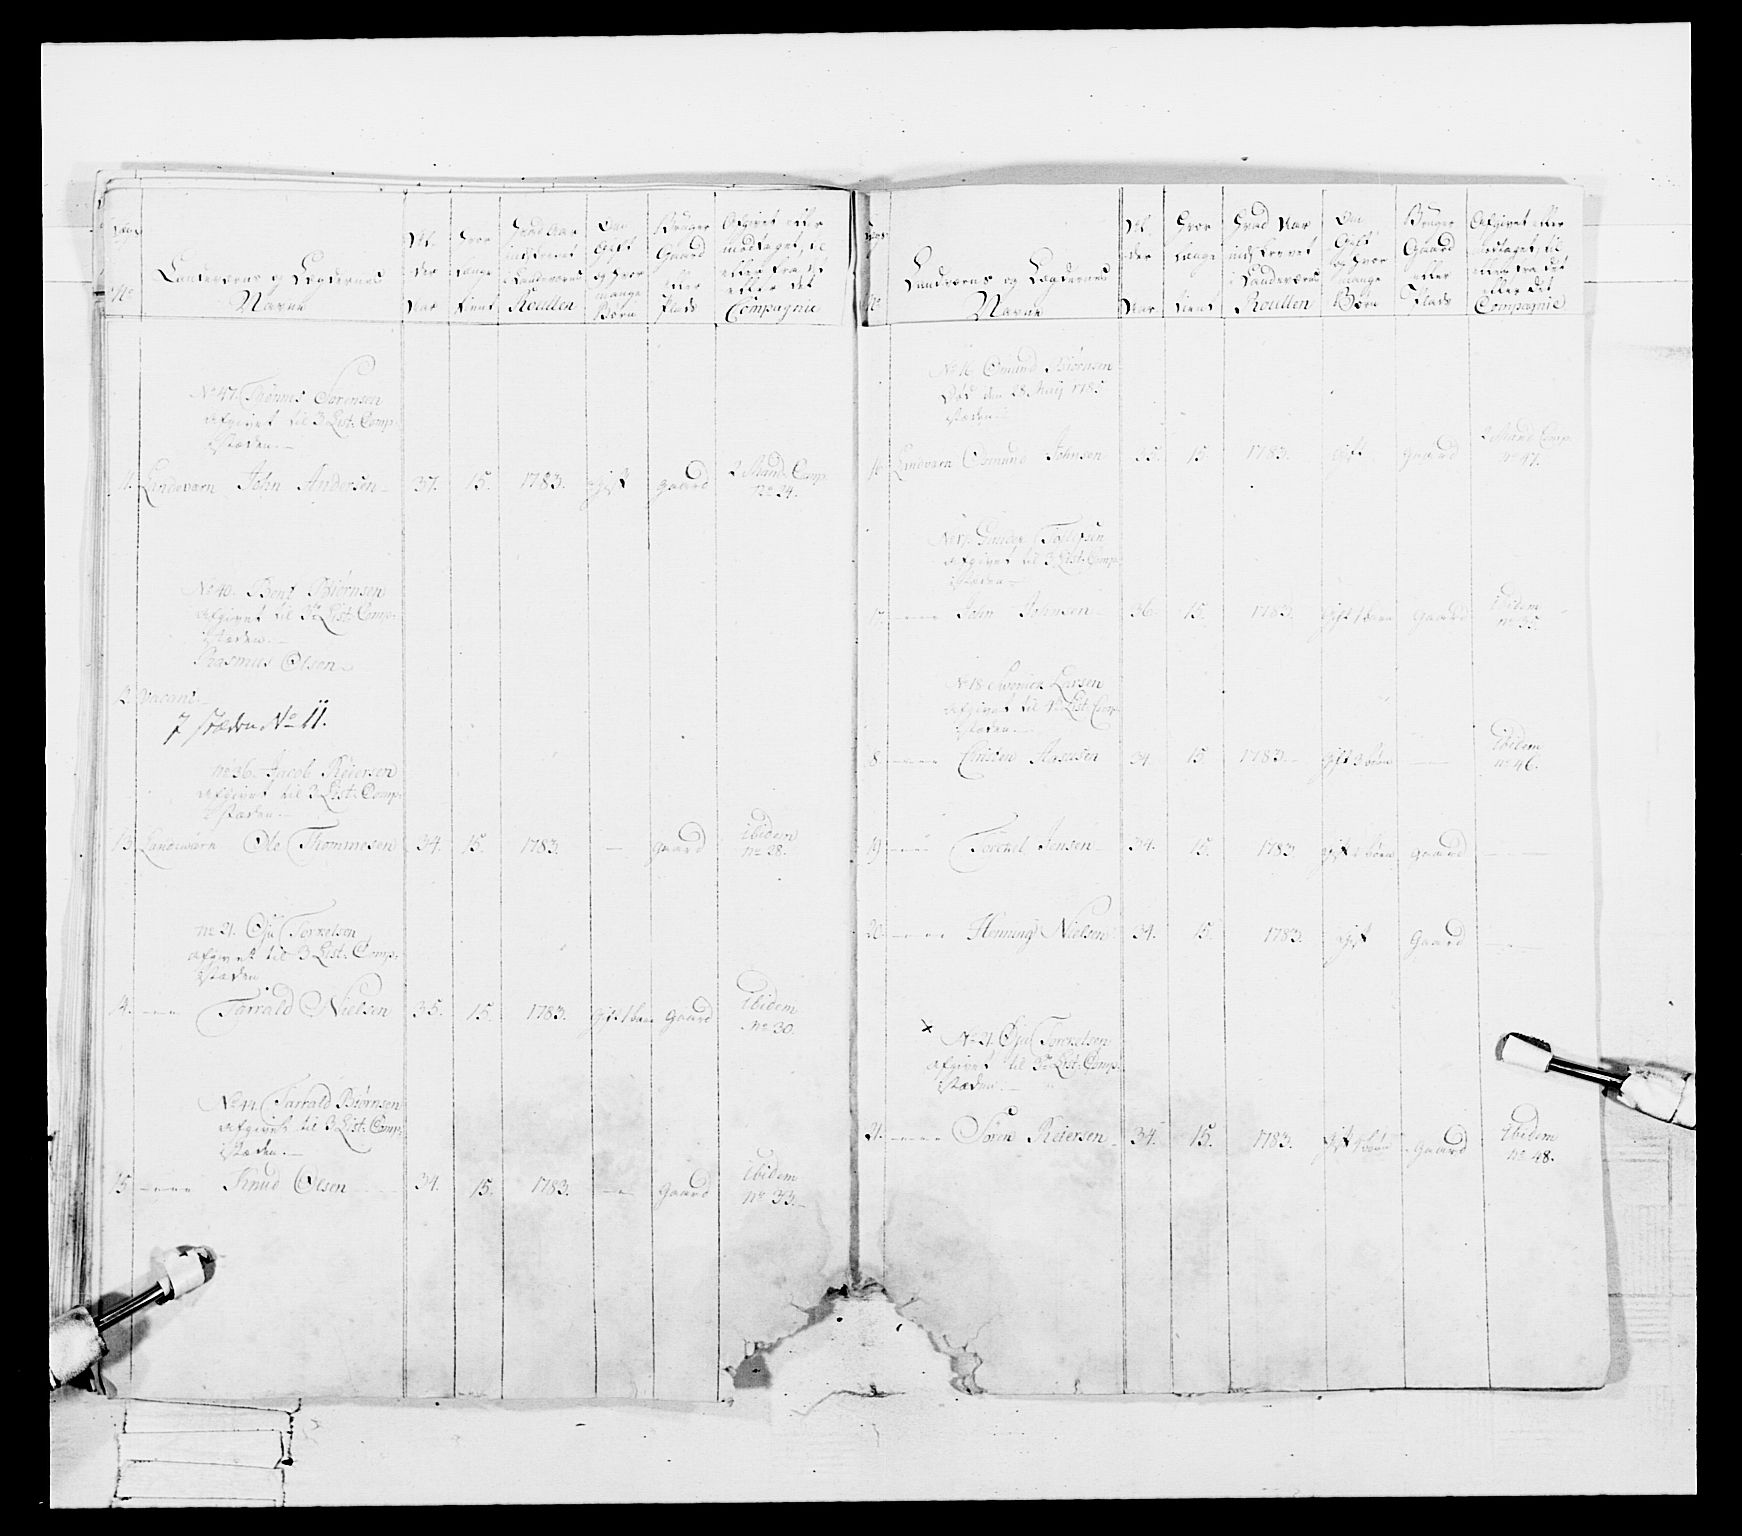 No
Landværns og Lægdernes
Navne
Al-
der
Aar
Hvor
længe
tient
Hvad Aar
indskrevet
i Landeværns
Roullen
Om
Gift
og hvor
mange
Børn
Bruger
Gaard
eller
Plads
Afgivet eller
modtaget, til
eller fra, det
eller det
Compagnie
No 47. Thønnes Sørensen
afgivet til 3 List: Comp:
istæden.-
11. Landværn John Andersen 37. 15. 1783. Gift gaard 2 Mand: Comp:
No 24.
No 40. Bent Biørnsen
afgivet til 3de List: Comp:
istæden.-
Rasmus Olsen
12 Vacant.
I stæden No 11.
No 36. Jacob Reiersen
afgivet til 3 List: Comp:
istæden.-
13. Landværn Ole Thommesen 34. 15. 1783. - gaard ibidem
No 28.
No 21. Torkelsen
afgivet til 3 List: Comp:
istæden
14. ---- Tarrald Nielsen 35. 15. 1783. Gift 1 barn Gaard ibidem
No 30.
No 44. Tarrald Biørnsen
afgivet til 3 List: Comp:
istæden.-
15 ---- Knud Olsen 34. 15. 1783. - Gaard ibidem
No 33.
No
Landværns og Lægdernes
Navne
Al-
der
Aar
Hvor
længe
tient
Hvad Aar
indskrevet
i Landeværns
Roullen
Om
Gift
og hvor
mange
Børn
Bruger
Gaard
eller
Plads
Afgivet eller
modtaget, til
eller fra, det
eller det
Compagnie
No 16 Osmund Biørnsen
Død den 28 Maij 1785
istæden
16 Landværn Osmund Johnsen 35. 15. 1783. Gift gaard 2 Mand: Comp:
No 47.
No 17. Tollefsen
afgivet til 3 List: Comp:
istæden
17. ---- John Johnsen 36. 15. 1783. gift 1 barn Gaard ibidem
No 35.
No 18 Larsen
afgivet til List: Comp:
istæden
18 ---- Christen 34. 15. 1783. gift 3 børn --- ibidem
No 46.
19 ---- Torckel Jensen 34. 15. 1783. gift børn gaard ---
20. ---- Henning Nielsen 34. 15. 1783. gift Gaard ---
x
No 21. Torckelsen
afgivet til 3de List: Comp:
istæden.-
21. ---- Søren Reiersen 34. 15. 1783. gift gaard ibidem
No 48.